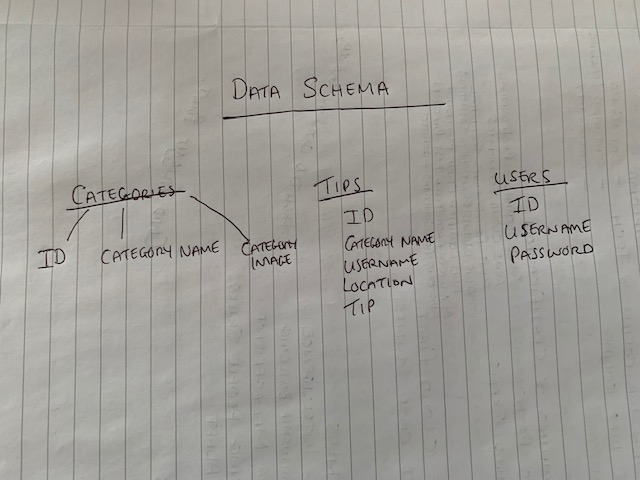 DATA SCHEMA
CATEGORIES
ID
CATEGORY NAME
CATEGORY
IMAGE
TIPS
ID
CATEGORY NAME
USERNAME
LOCATION
TIP
USERS
ID
USERNAME
PASSWORD